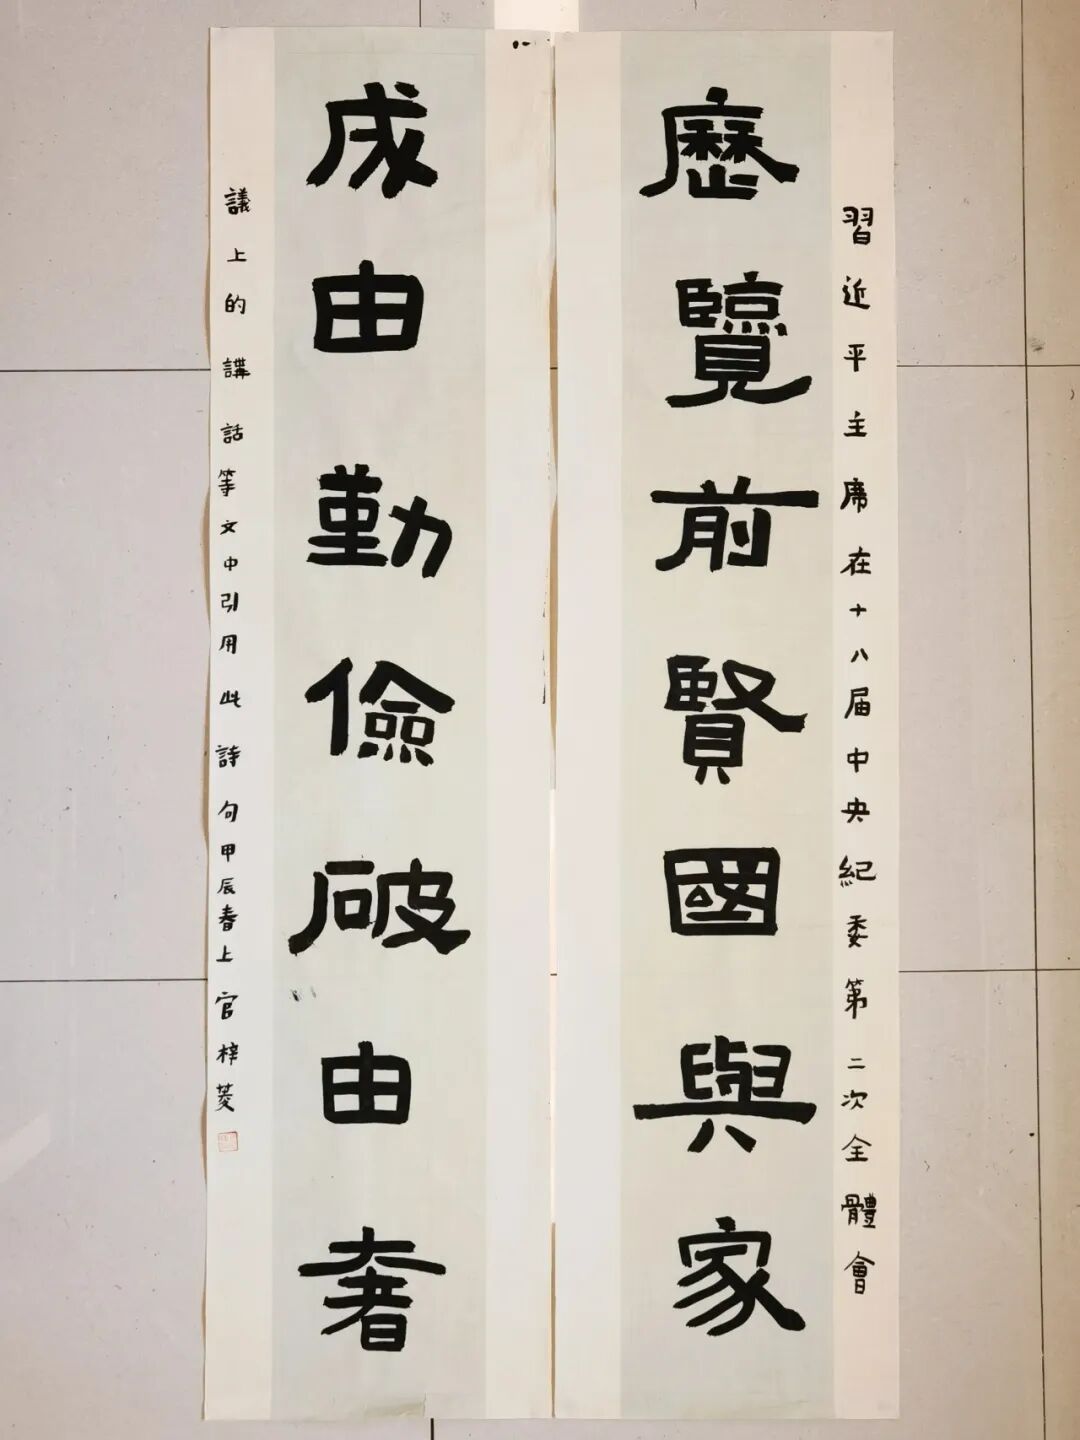 習近平主席在十八届中央紀委第二次全體會
歷覽前賢國與家
成由勤儉破由奢
議上的講話等文中引用此詩句甲辰春上官梓菱